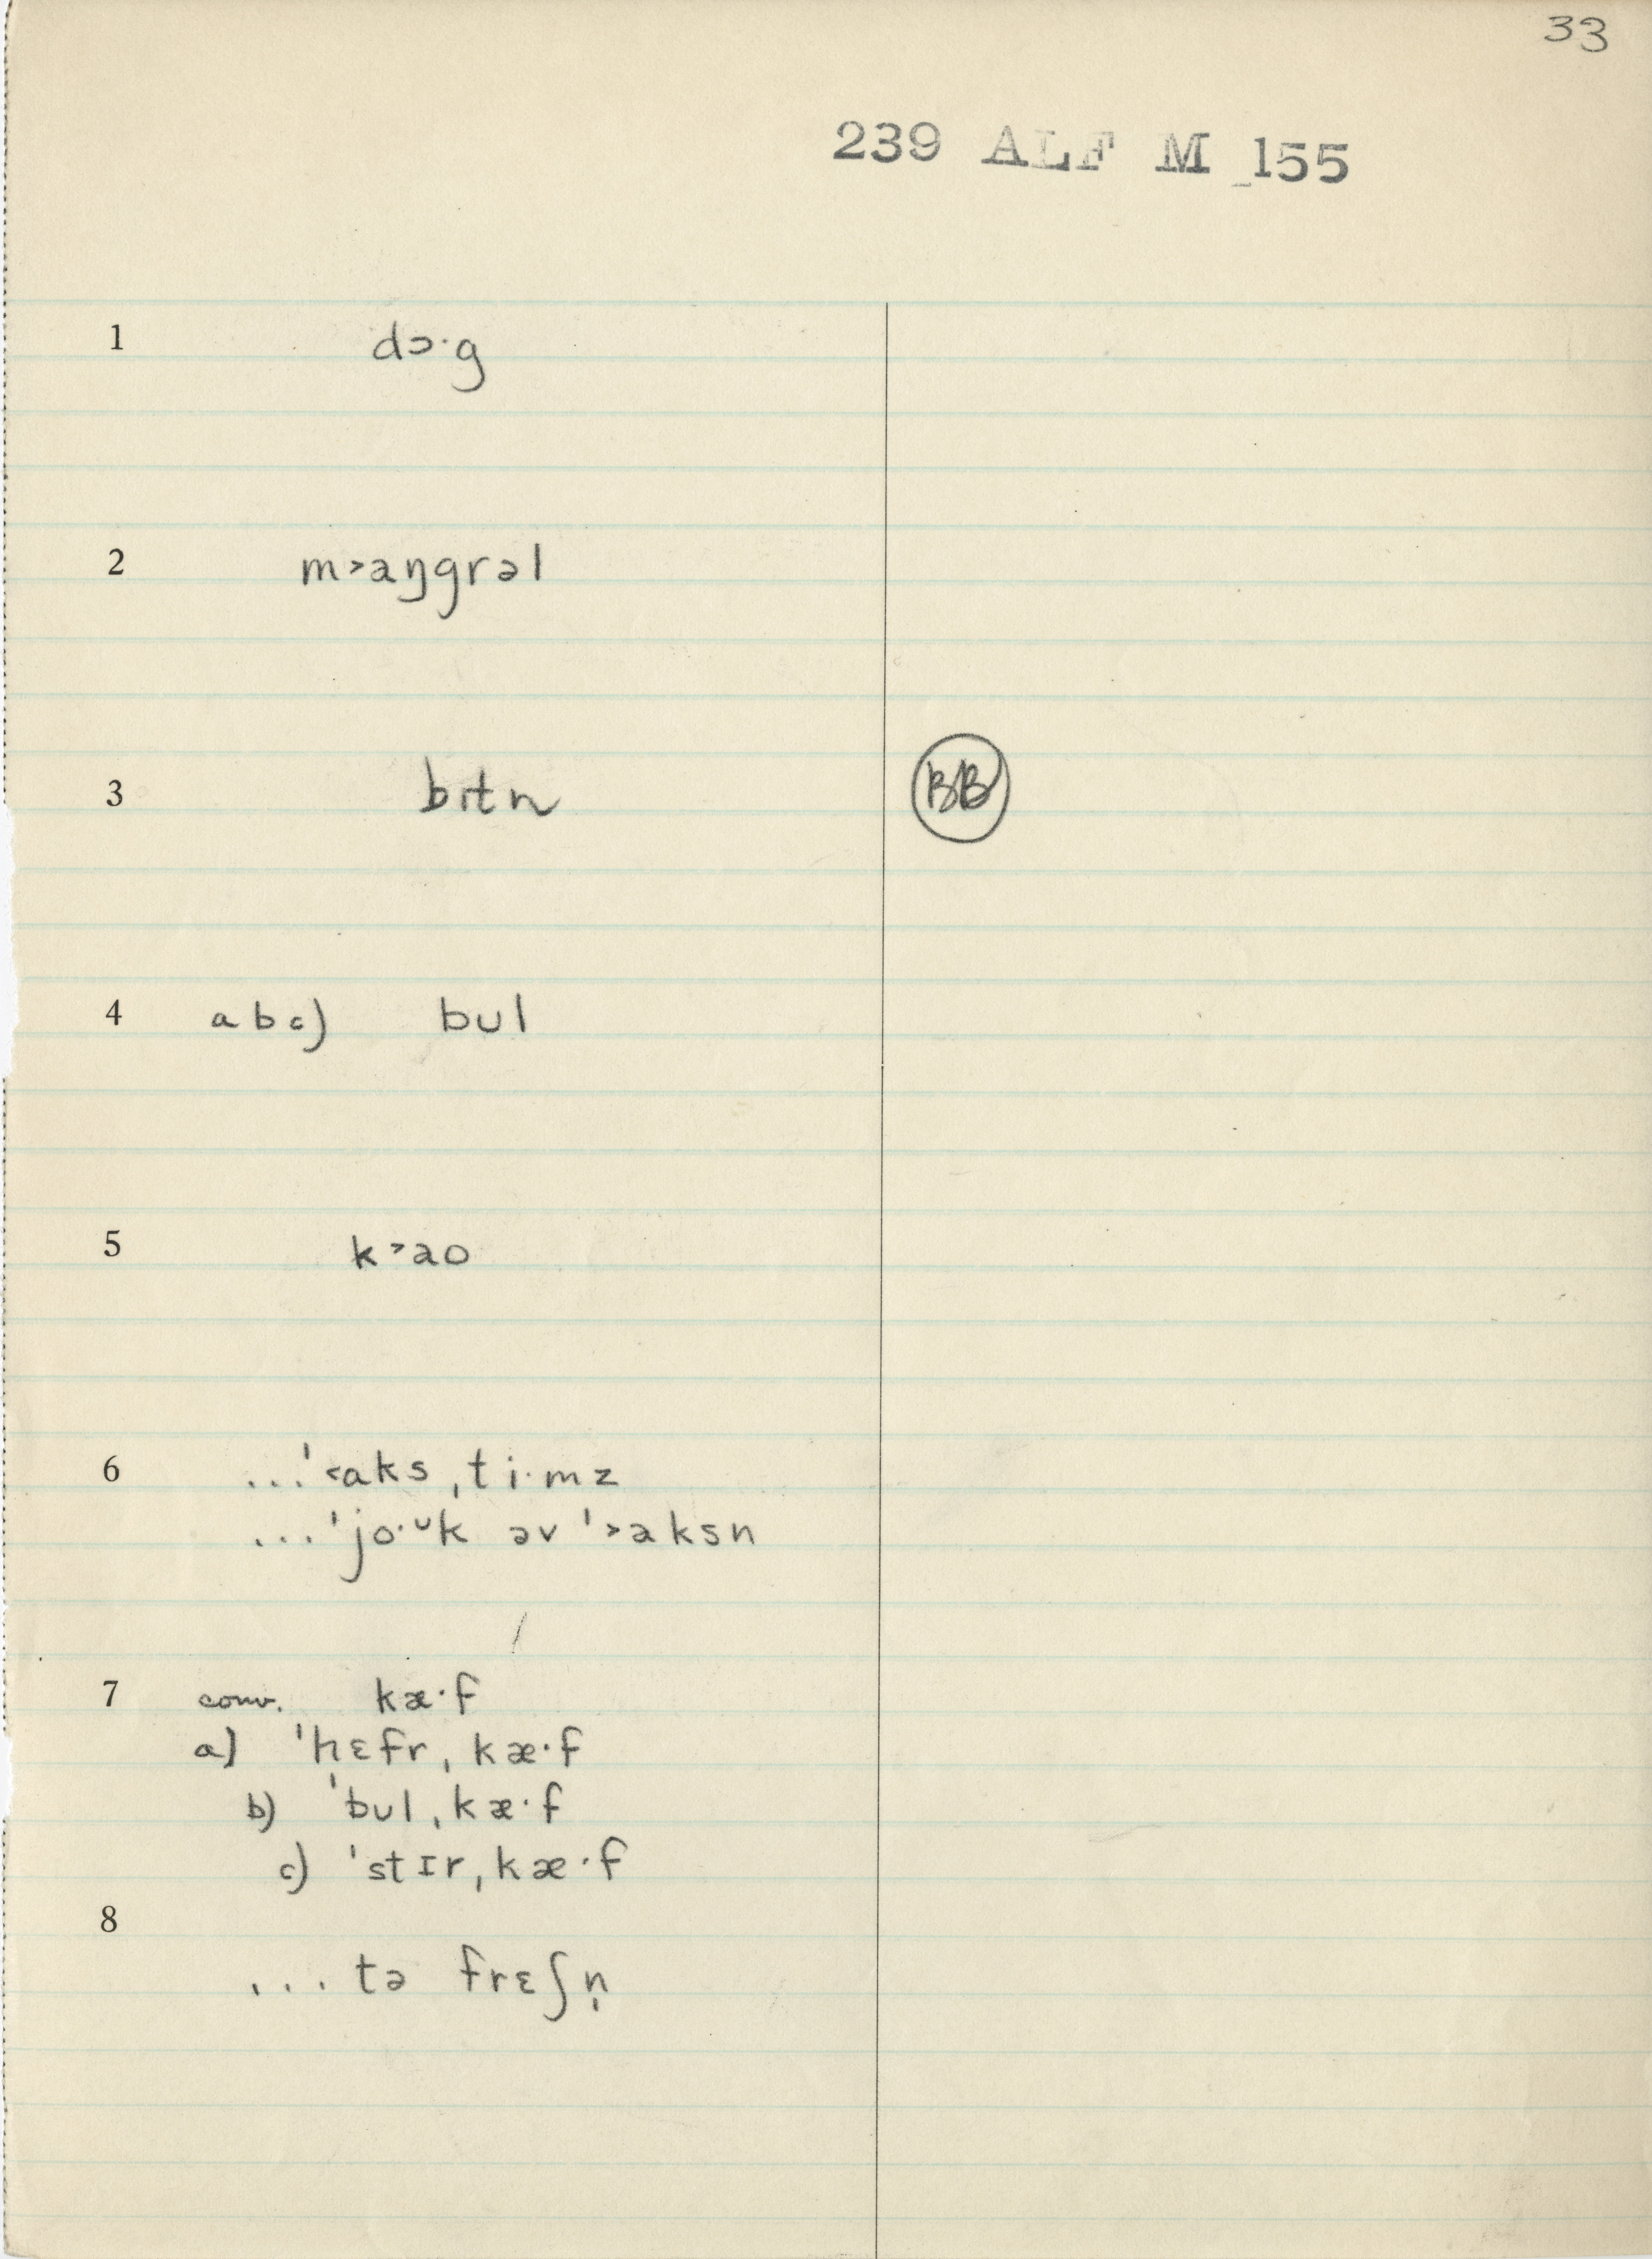 33
239 ALF M 155
1 dɔ·g
2 m˃aŋgrəl
3 bɪtn
BB
4 a b c) bul
5 k˃ao
6 ...ˈ˂aks ˌti·mz
...ˈjo·ᵁk əv ˈ˃aksn
7 conv. kæ·f
a) ˈhɛfr ˌkæ·f
b) ˈbul ˌkæ·f
c) ˈstɪr ˌkæ·f
8
... tə frɛʃn̩